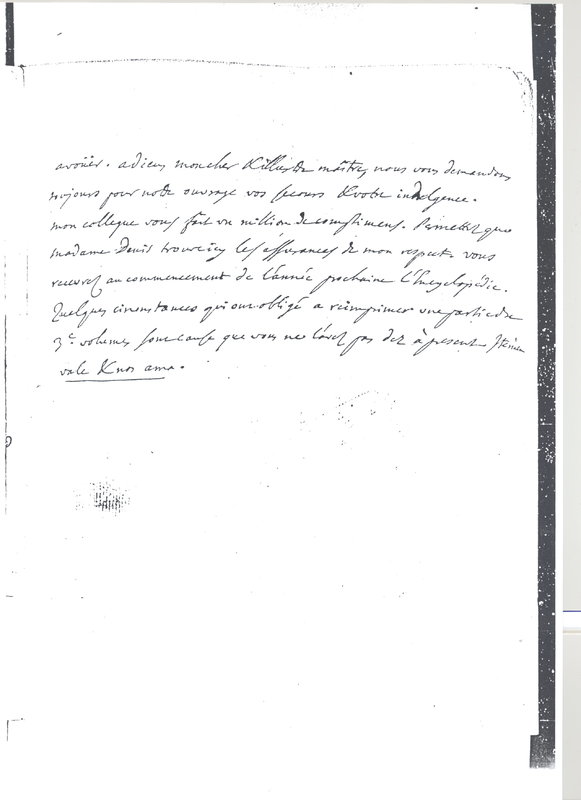 avoüer. adieu, mon cher & illustre maître, nous vous demandons
toujours pour notre ouvrage vos secours & votre indulgence.
mon collegue vous fait un million de complimens. Permettez que
madame Denis trouve icy les assurances de mon respect. vous
recevrez au commencement de l'année prochaine l'Encyclopédie.
Quelques circonstances qui ont obligé a réimprimer une partie du
3e. volume sont cause que vous ne l'avez pas dez à present. Iterum
vale & nos ama.